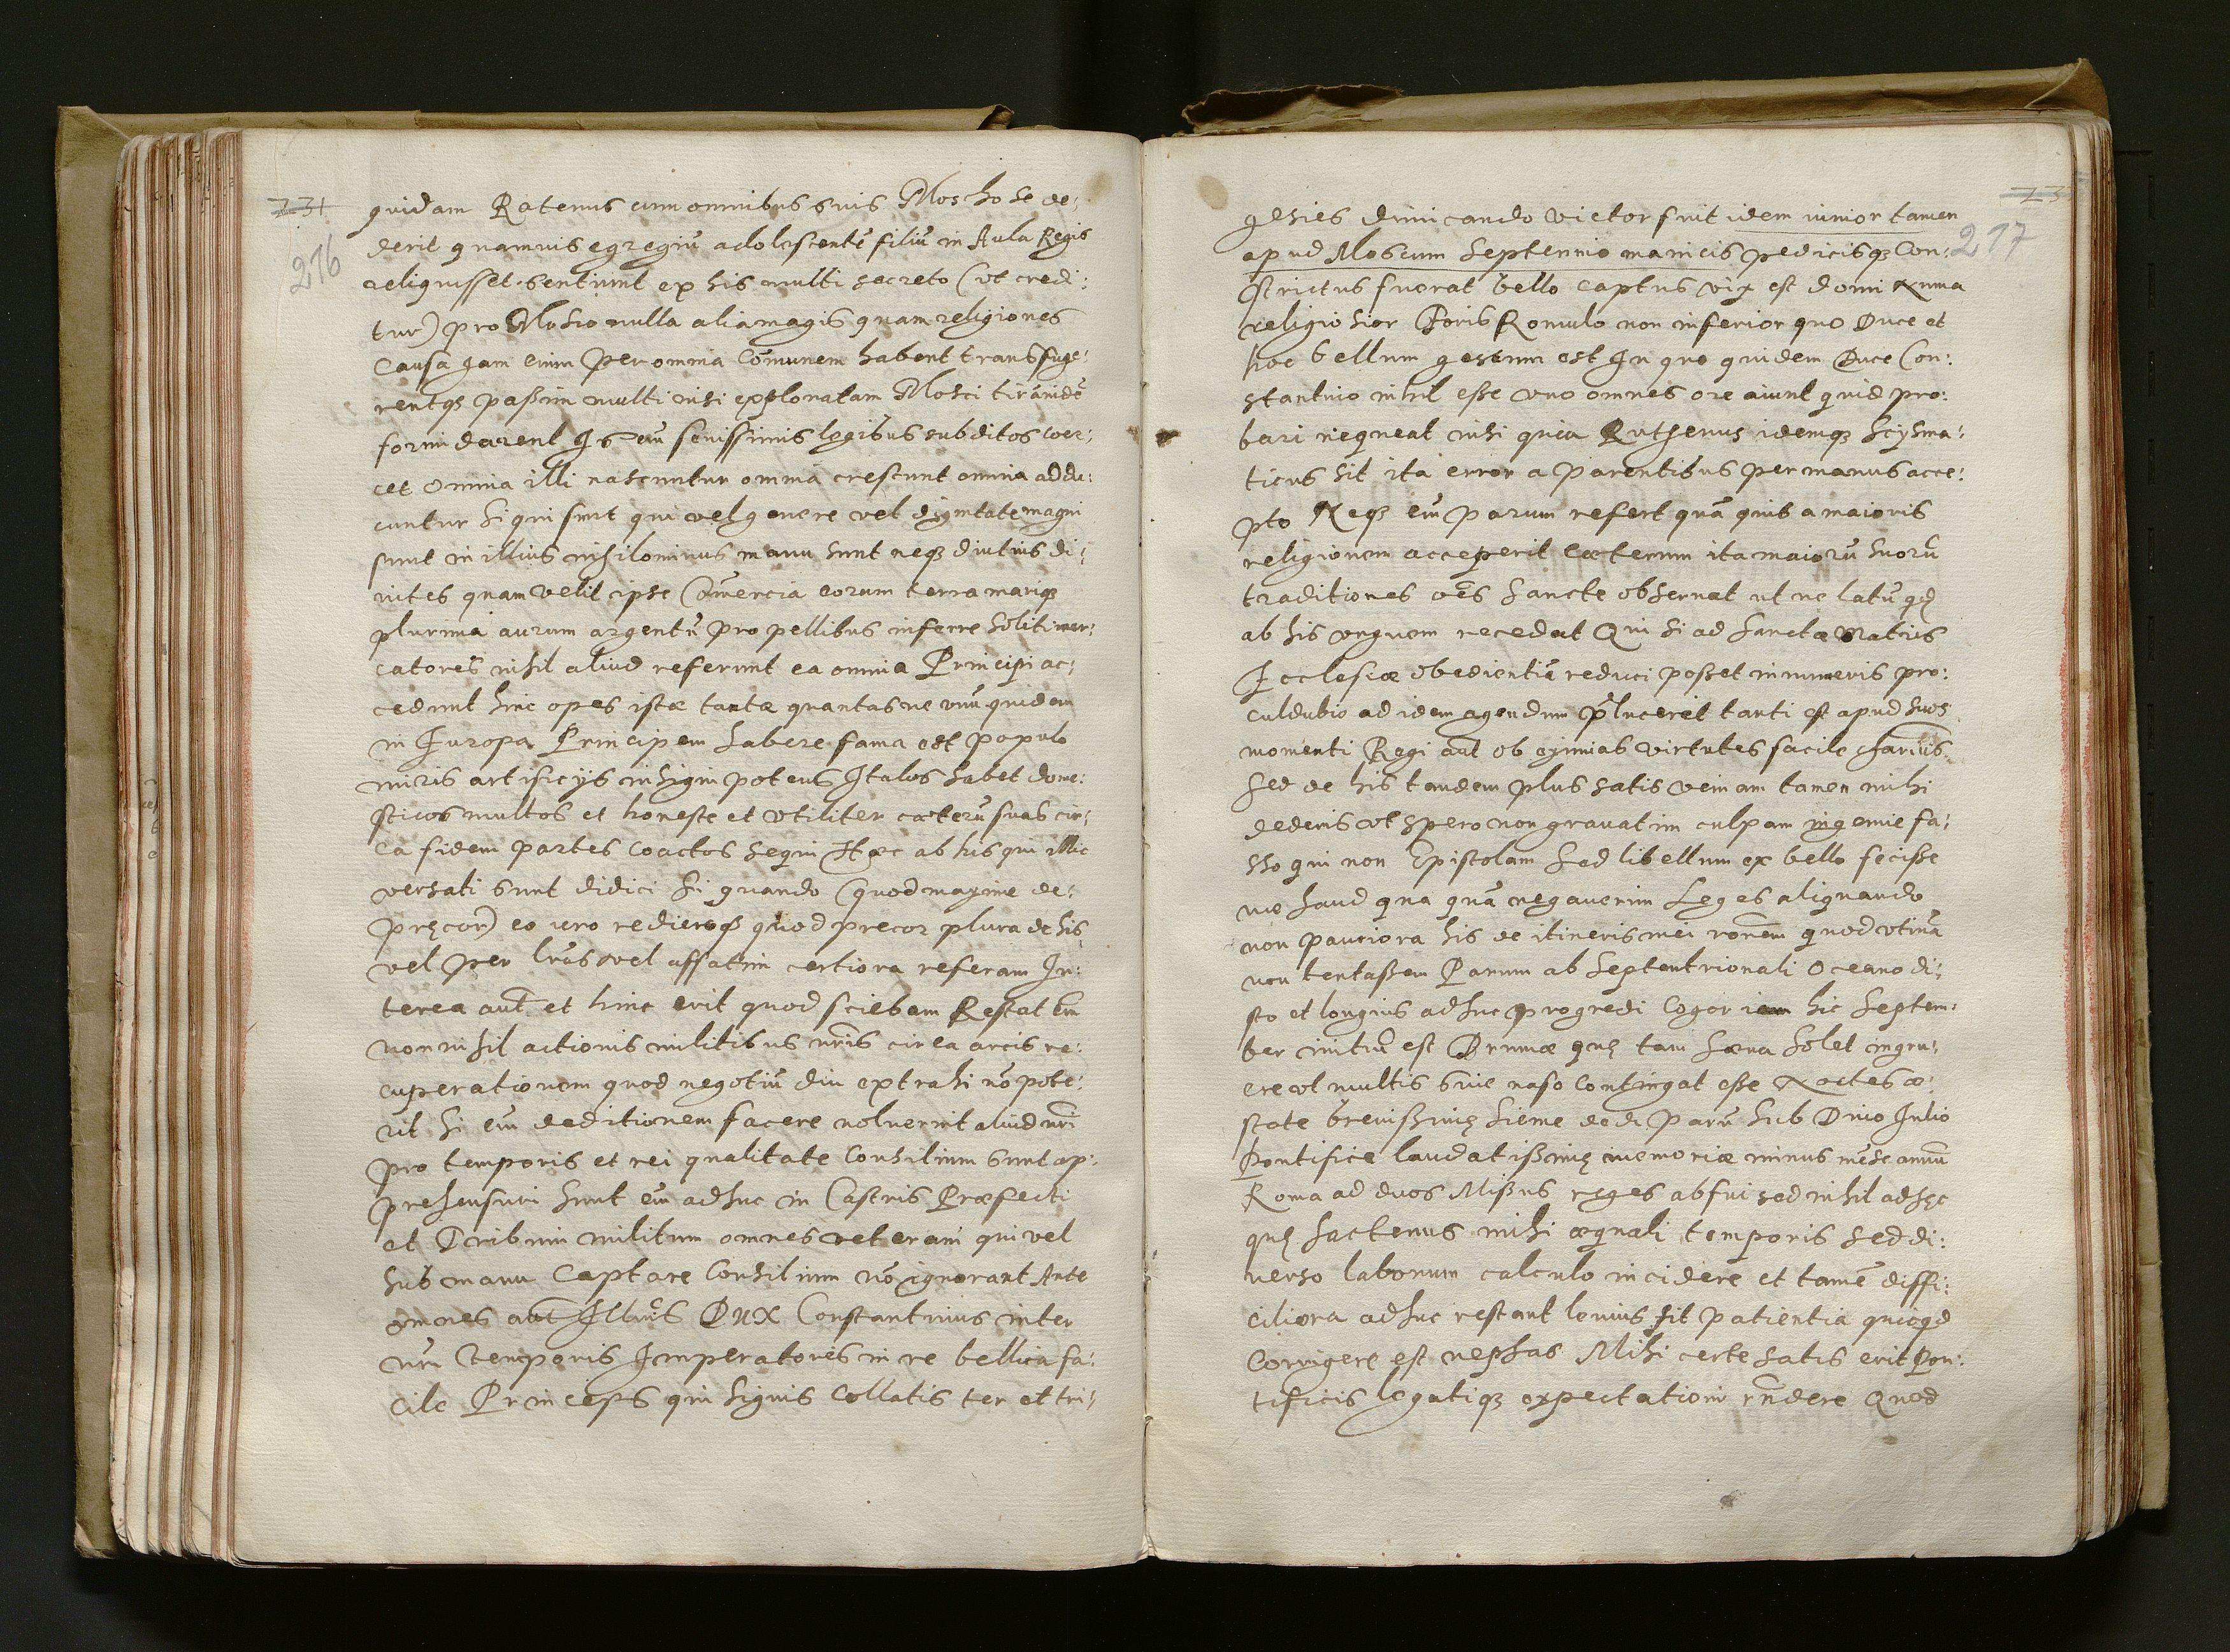 731
216
quidam Ratenus cum omnibus suis Moscho se de:
derit quamuis egregiũ adolescentẽ filiũ in Aula Regis
reliquisset. sentiunt ex his multi secreto (vt credi:
tur) pro Mosco nulla alia magis quam religiones
causa quam enim per omnia Cõmunem habent transfuge:
rentqȝ passim multi nisi exploratam Mosci tirãnidẽ
formidarent Is eñi seuissimis legibus subditos coer:
cet omnia illi nascuntur omnia crescunt omnia addu:
cuntur si qui sunt qui vel genere vel dignitate magni
sunt in illius nihilominus manu sunt neqȝ diutius di:
uites quam velit ipse Cõmercia eorum terra mariqȝ
plurima aurum argentũ pro pellibus inferre soliti mer:
catores nihil aliud referunt ea omnia Principi ac:
cedunt hinc opes istæ tantæ quantas ne vnũ quidem
in Europa Principem habere fama est populo
miris artificijs insigni potens Italos habet dome:
sticos multos et honeste et vtiliter cæterũ suas cir:
ca fidem partes coactos sequi Hæc ab his qui illic
versati sunt didici Si quando (quod maxime de:
pręcor) eo iero rediero quod precor plura de his
vel per lr̃as vel affatim certiora referam In:
terea aut̃ et hinc erit quod sciebam Restat eñi
non nihil actionis militibus nr̃is circa arcis re:
cuperationem quod negotiũ diu extrahi nõ pote:
rit si eñi deditionem facere noluerint aliud nr̃i
pro temporis et rei qualitate Consilium sunt ap:
prehensuri sunt eñi adhuc in Castris Præfecti
et Tribuni militum omnes veterani qui vel
sub manu Captare Consilium nõ ignorant Ante
omnes aut̃ Illmũs DUX Constantinus inter
nr̃i temporis Imperatores in re bellica fa:
cile Princeps qui signis Collatis ter et tri:
73
217
gesies dimicando victor fuit idem iunior tamen
apud Moscum Septennio manicis pedicisqȝ Con:
strictus fuerat bello captus vix est domi Numa
religiosior Foris Romulo non inferior quo Duce et
hoc bellum gestum est In quo quidem Duce Con:
stantino nihil esse vno omnes ore aiunt quid pro:
bari nequeat nisi quia Ruthenus idemqȝ Scysma:
ticus sit ita error a parentibus per manus acce:
pto Neqȝ eñi parum refert quã quis a maioris
religionem acceperit Cæterum ita maiorũ suorũ
traditiones oẽs sancte obseruat ut ne latũ qd̃
ab his vnguem recedat Qui si ad Sanctæ Matris
Ecclesiæ obedientiã reduci posset innumeris pro:
culdubio ad idem agendum p̃luceret tanti est apud suos
momenti Regi aut̃ ob eximias virtutes facile charius
Sed de his tandem plus satis veniam tamen mihi
dederis vt spero non grauatim culpam ingenue fa:
sso qui non Epistolam Sed libellum ex bello fecisse
me haud qua quã negauerim Leges aliquando
non pauciora his de itineris mei rõnem quod vtinã
non tentassem Parum ab Septentrionali Oceano di:
sto et longius adhuc progredi Cogor iam hic Septem:
ber initiũ est Brumæ quę tam sæua solet ingru:
ere vt multis siue naso contingat esse Noctes æ:
state breuissimę hieme dedi parũ sub Diuo Iulio
Pontifice laudatissimę memoriæ minus mẽse annũ
Roma ad duos Missus reges abfui sed nihil ad hęc
quę hactenus mihi æquali temporis sed di:
uerso laborum calculo incidere et tamẽ diffi:
ciliora adhuc restant leuius fit patientia quicqd
Corrigere est nephas Mihi certe satis erit Pon:
tificis legatiqȝ expectationi rñdere Quod